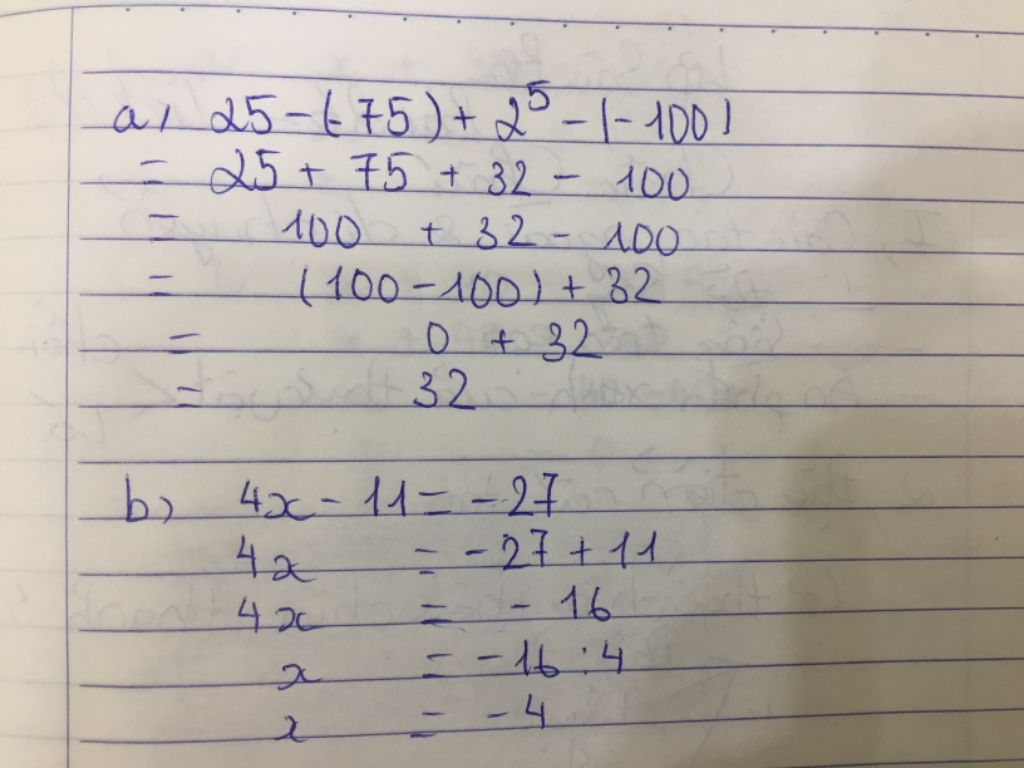 a, 25 - (-75) + 2⁵ - |-100|
= 25 + 75 + 32 - 100
= 100 + 32 - 100
= (100 - 100) + 32
= 0 + 32
= 32
b) 4x - 11 = -27
4x = -27 + 11
4x = -16
x = -16 : 4
x = -4